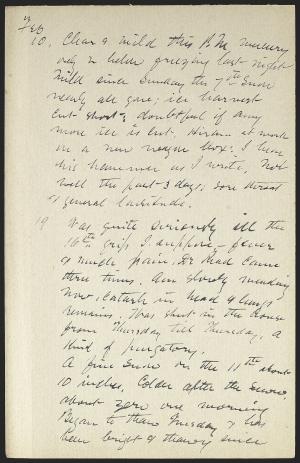 Feb
10. Clear & mild this P.M. mercury
only below freezing last night
Mild since Sunday the 7th Snow
nearly all gone; ice harvest
cut short; doubtful if any
more ice is cut. Hiram at work
on a new wagon box: I hear
his hammer as I write. Not
well the past 3 days: sore throat
& general lassitude.
19 Was quite seriously ill the
16th grip I suppose - fever
& much pain. Dr Head came
three times. Am slowly mending
now. Catarrh in head & lungs
remains. Was shut in the house
from Thursday till Thursday, a
kind of purgatory.
A fine snow on the 11th about
10 inches, Colder after the snow,
about zero one morning
Began to thaw Tuesday & has
been bright & thawing since